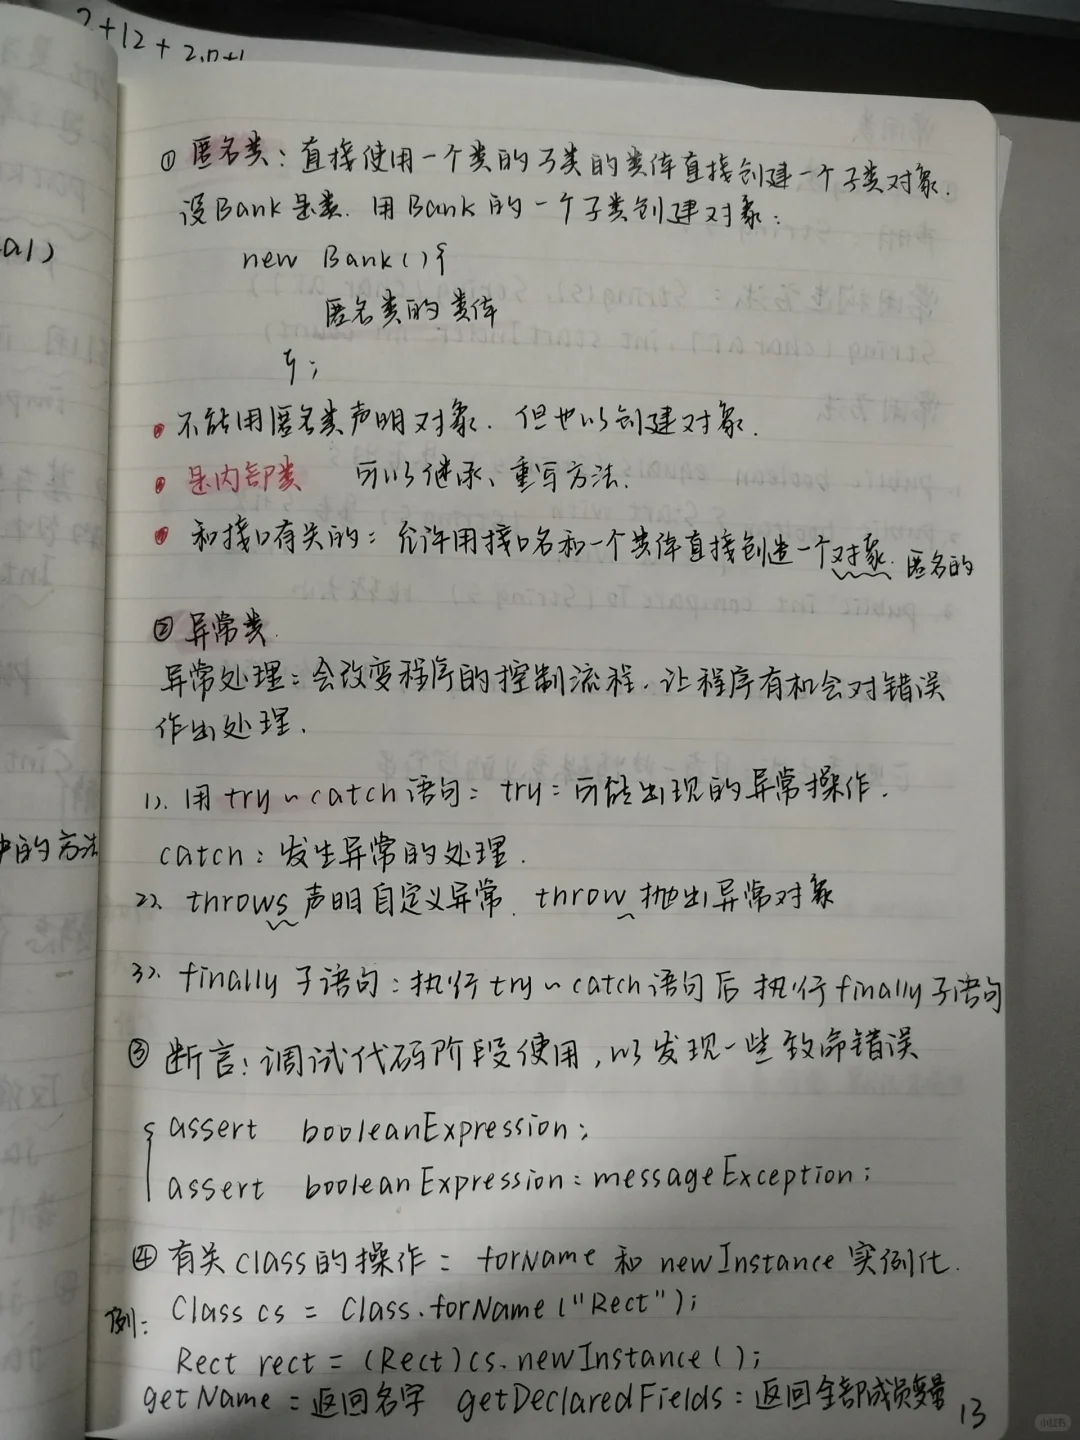 2+12+
-a1)
中的方法
① 匿名类：直接使用一个类的子类的类体直接创建一个子类对象.
设Bank是类. 用Bank的一个子类创建对象：
new Bank(){
匿名类的类体
};
不能用匿名类声明对象. 但也以创建对象.
是内部类 可以继承、重写方法.
和接口有关的：允许用接口名和一个类体直接创造一个对象. 匿名的
② 异常类.
异常处理：会改变程序的控制流程. 让程序有机会对错误
作出处理.
1). 用try~catch语句：try：可能出现的异常操作.
catch：发生异常的处理.
2). throws声明自定义异常. throw抛出异常对象
3). finally子语句：执行try~catch语句后执行finally子语句
③ 断言：调试代码阶段使用，以发现一些致命错误
assert booleanExpression;
assert booleanExpression：messageException;
④ 有关class的操作：forName和newInstance实例化.
例： Class cs = Class.forName("Rect");
Rect rect = (Rect)cs.newInstance();
getName：返回名字 getDeclaredFields：返回全部成员变量
13
小红书